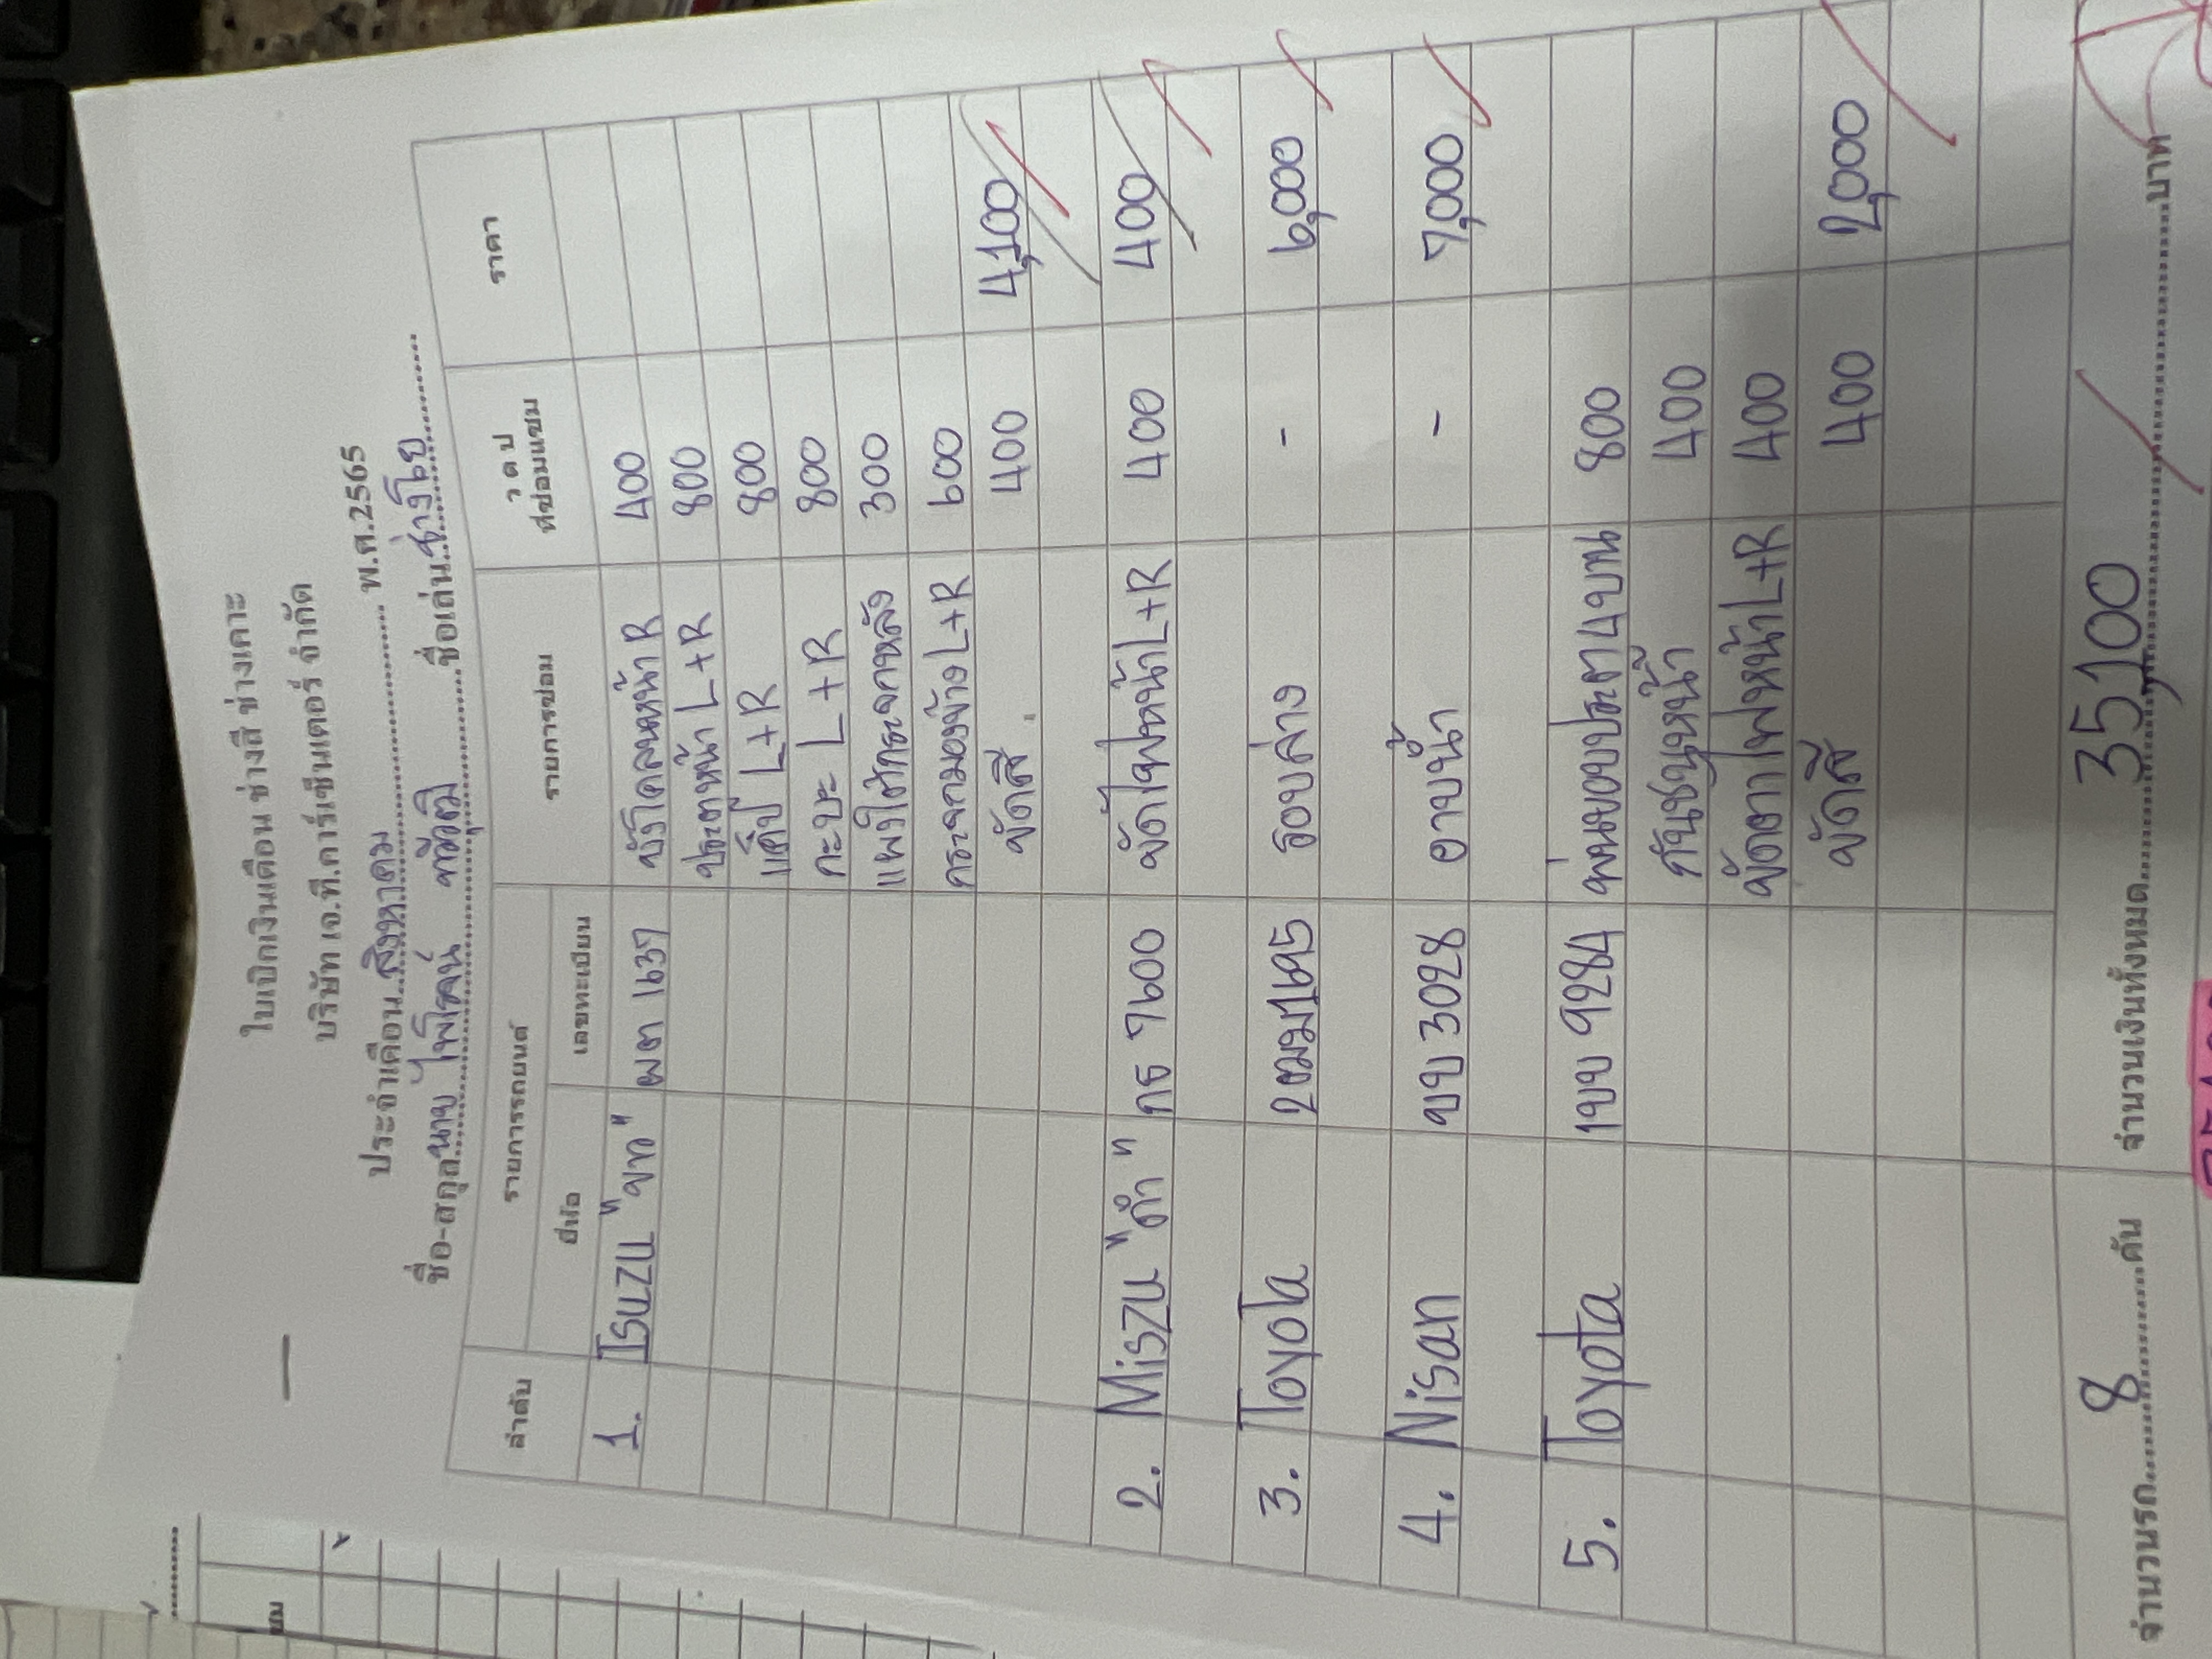 ใบเบิกเงินเดือน ช่างสี ช่างเคาะ
บริษัท เจ.ที.คาร์เซ็นเตอร์ จำกัด
ประจำเดือน สิงหาคม พ.ศ.2565
ชื่อ-สกุล นาย ไพโรจน์ ชื่อเล่น ช่างโย
ลำดับ รายการรถยนต์ รายการซ่อม ว ด ป ที่ซ่อมแซม ราคา
ยี่ห้อ เลขทะเบียน
1. ISUZU ผต 1637 บังโคลนหน้า R 400
ประตูหน้า L+R 800
แค๊ป L+R 800
กะบะ L+R 800
แผงใต้กระจกหลัง 300
กระจกมองข้าง L+R 600
ขัดสี 400 4,100
2. Miszu "ดำ" กธ 7600 ขัดไฟหน้า L+R 400 400
3. Toyota 2ฒม1695 รอบล่าง - 6,000
4. Nisan ขบ 3028 อาบน้ำ - 7,000
5. Toyota 1ขบ 9284 พ่นขอบประตู 4 บาน 800
กันชนหน้า 400
ขัดตาไฟหน้า L+R 400
ขัดสี 400 2,000
จำนวนรถ 8 คัน จำนวนเงินทั้งหมด 35,100 บาท